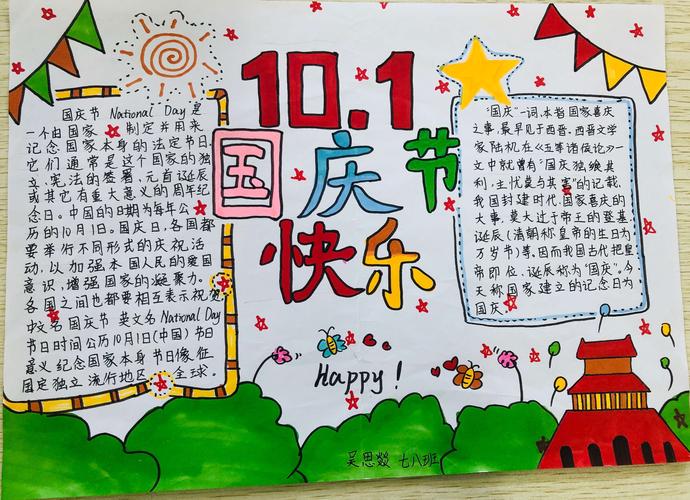 10.1
国庆节
快乐
国庆节 National Day是
一个由国家 制定并用来
记念国家本身的法定节日,
它们通常是这个国家的独
立、宪法的签署、元首诞辰
或其它有重大意义的周年纪
念日。中国的日期为每年公
历的10月1日。国庆日,各国都
要举行不同形式的庆祝活
动,以加强本国人民的爱国
意识,增强国家的凝聚力。
各国之间也都要相互表示祝贺
中文名 国庆节 英文名 National Day
节日时间公历10月1日(中国) 节日
意义 纪念国家本身 节日像征
国定独立 流行地区 全球。
"国庆"一词,本指国家喜庆
之事,最早见于西晋。西晋文学
家陆机在《五等诸侯论》一
文中就曾有"国庆独飨其
利,主忧莫与其害"的记载、
我国封建时代、国家喜庆的
大事,莫大过于帝王的登基、
诞辰(清朝称皇帝的生日为
万岁节)等,因而我国古代把皇
帝即位、诞辰称为"国庆"。今
天称国家建立的纪念日为
国庆。
Happy!
七八班